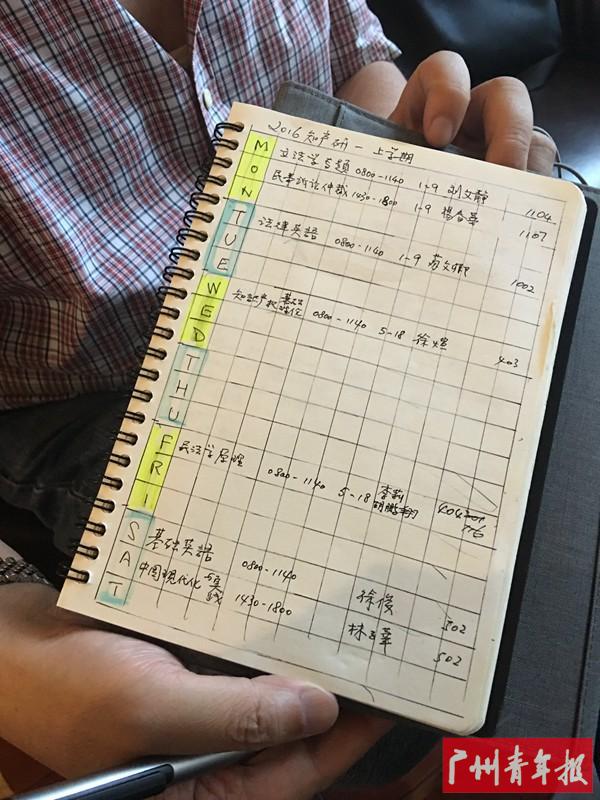 2016 知产研一 上学期
MON
立法学专题 0800-1140 1-9 刘文静 1104
民事诉讼仲裁 1430-1800 1-9 杨合华 1107
TUE
法律英语 0800-1140 1-9 苏文卿 1002
WED
知识产权基础理论 0800-1140 5-18 徐煜 403
THU
FRI
民法学原理 0800-1140 5-18 李莉 胡鹏翔 404
SAT
基础英语 0800-1140 徐俊 502
中国现代化与实践 1430-1800 林玉华 502
广州青年报